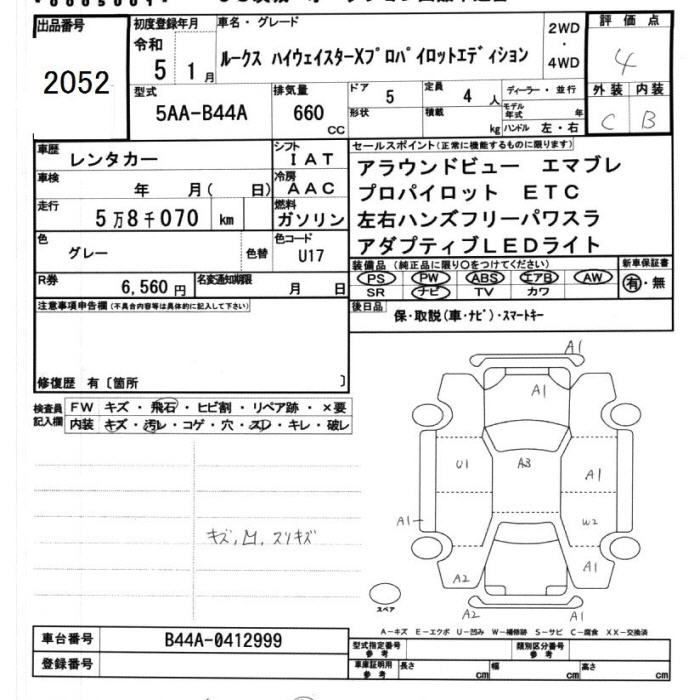 出品番号
2052
初度登録年月
令和
5 1月
車名・グレード
ルークス ハイウェイスターXプロパイロットエディション
2WD
・
4WD
評価点
4
外装 内装
C B
型式
5AA-B44A
排気量
660
CC
ドア
5
定員
4 人
形状
積載
kg
ディーラー・並行
モデル年式 年
ハンドル 左・右
車歴
レンタカー
シフト
IAT
車検
年 月( 日)
冷房
AAC
走行
5万8千070 km
燃料
ガソリン
色
グレー
色替
色コード
U17
R券
6,560円
名変通知期限
月 日
セールスポイント(正常に機能するものに限ります)
アラウンドビュー エマブレ
プロパイロット ETC
左右ハンズフリーパワスラ
アダプティブLEDライト
装備品(純正品に限り○をつけてください)
PS PW ABS エアB AW
SR ナビ TV カワ
新車保証書
有・無
後日品
保・取説(車・ナビ)・スマートキー
注意事項申告欄(不具合内容等は具体的に記入して下さい)
修復歴 有〔箇所 〕
検査員記入欄
FW キズ・飛石・ヒビ割・リペア跡・×要
内装 キズ・汚レ・コゲ・穴・スレ・キレ・破レ
キズ, 凹, スリキズ
A1
A1
U1
A3
A1
A1
W2
A2
A1
A2
A1
スペア
A-キズ E-エクボ U-凹み W-補修跡 S-サビ C-腐食 XX-交換済
車台番号
B44A-0412999
登録番号
型式指定番号
参考
類別区分番号
参考
車庫証明用
参考
長さ cm
幅 cm
高さ cm